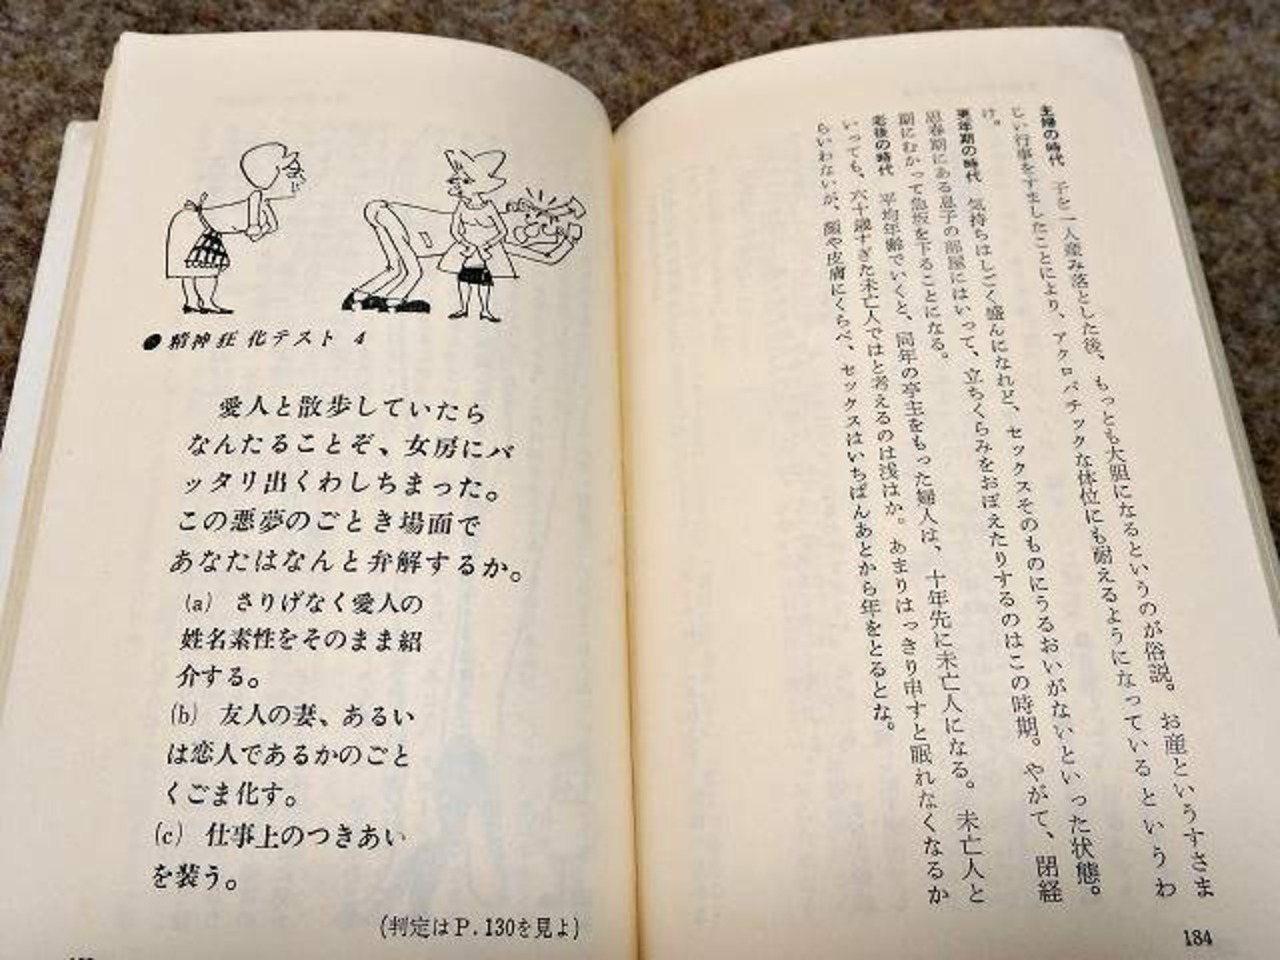 主婦の時代　子を一人産み落とした後、もっとも大胆になるというのが俗説。お産というすさま
じい行事をすましたことにより、アクロバチックな体位にも耐えるようになっているというわ
け。
更年期の時代　気持ちはしごく盛んになれど、セックスそのものにうるおいがないといった状態。
思春期にある息子の部屋にはいって、立ちくらみをおぼえたりするのはこの時期。やがて、閉経
期にむかって急坂を下ることになる。
老後の時代　平均年齢でいくと、同年の亭主をもった婦人は、十年先に未亡人になる。未亡人と
いっても、六十歳すぎた未亡人ではと考えるのは浅はか。あまりはっきり申すと眠れなくなるか
らいわないが、顔や皮膚にくらべ、セックスはいちばんあとから年をとるとな。
184
●精神狂化テスト 4
愛人と散歩していたら
なんたることぞ、女房にバ
ッタリ出くわしちまった。
この悪夢のごとき場面で
あなたはなんと弁解するか。
(a) さりげなく愛人の
姓名素性をそのまま紹
介する。
(b) 友人の妻、あるい
は恋人であるかのごと
くごま化す。
(c) 仕事上のつきあい
を装う。
(判定はP.130を見よ)